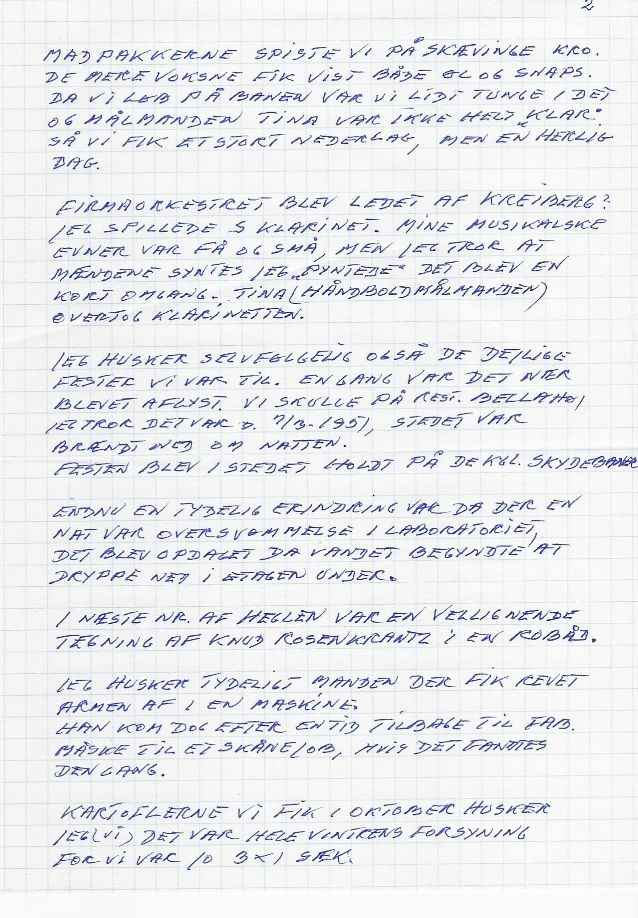 2
MADPAKKERNE SPISTE VI PÅ SKÆVINGE KRO.
DE MERE VOKSNE FIK VIST BÅDE ØL OG SNAPS.
DA VI LØB PÅ BANEN VAR VI LIDT TUNGE I DET
OG MÅLMANDEN TINA VAR IKKE HELT "KLAR".
SÅ VI FIK ET STORT NEDERLAG, MEN EN HERLIG
DAG.
FIRMAORKESTRET BLEV LEDET AF KREIBERG?
JEG SPILLEDE S KLARINET. MINE MUSIKALSKE
EVNER VAR FÅ OG SMÅ, MEN JEG TROR AT
MÆNDENE SYNTES JEG „PYNTEDE" DET BLEV EN
KORT OMGANG. TINA (HÅNDBOLDMÅLMANDEN)
OVERTOG KLARINETTEN.
JEG HUSKER SELVFØLGELIG OGSÅ DE DEJLIGE
FESTER VI VAR TIL. EN GANG VAR DET NÆR
BLEVET AFLYST. VI SKULLE PÅ REST. BELLAHØJ
JEG TROR DET VAR D. 7/3-1951, STEDET VAR
BRÆNDT NED OM NATTEN.
FESTEN BLEV I STEDET HOLDT PÅ DE KGL. SKYDEBANER
ENDNU EN TYDELIG ERINDRING VAR DA DER EN
NAT VAR OVERSVØMMELSE I LABORATORIET,
DET BLEV OPDAGET DA VANDET BEGYNDTE AT
DRYPPE NED I ETAGEN UNDER.
I NÆSTE NR. AF HEGLEN VAR EN VELLIGNENDE
TEGNING AF KNUD ROSENKRANTZ I EN ROBÅD.
JEG HUSKER TYDELIGT MANDEN DER FIK REVET
ARMEN AF I EN MASKINE.
HAN KOM DOG EFTER EN TID TILBAGE TIL FAB.
MÅSKE TIL ET SKÅNEJOB, HVIS DET FANDTES
DENGANG.
KARTOFLERNE VI FIK I OKTOBER HUSKER
JEG (VI) DET VAR HELE VINTRENS FORSYNING
FOR VI VAR JO 3 × 1 SÆK.